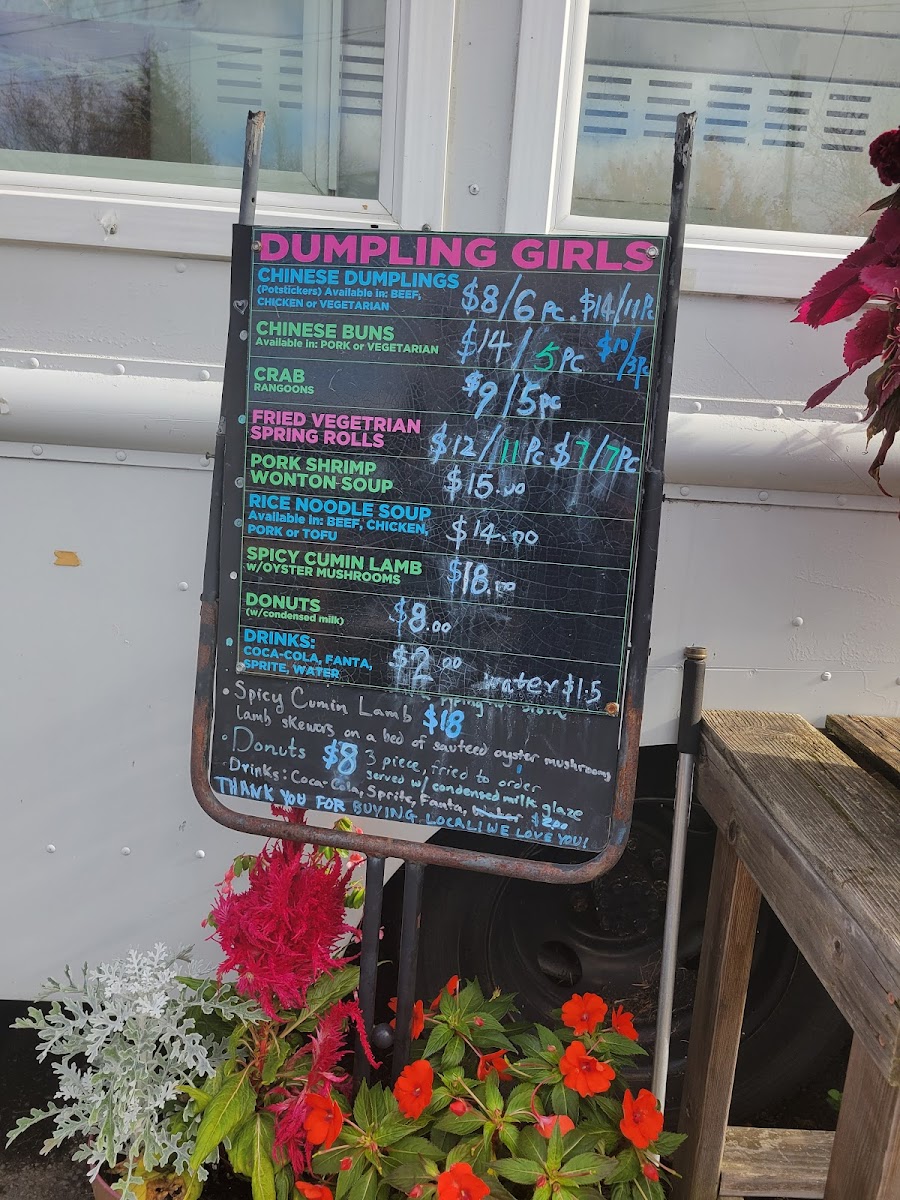 DUMPLING GIRLS
CHINESE DUMPLINGS
(Potstickers) Available in: BEEF,
CHICKEN or VEGETARIAN
$8/6 Pc. $14/11Pc
CHINESE BUNS
Available in: PORK or VEGETARIAN
$14/5Pc $10/3Pc
CRAB
RANGOONS
$9/5pc
FRIED VEGETRIAN
SPRING ROLLS
$12/11Pc $7/7Pc
PORK SHRIMP
WONTON SOUP
$15.00
RICE NOODLE SOUP
Available in: BEEF, CHICKEN,
PORK or TOFU
$14.00
SPICY CUMIN LAMB
w/OYSTER MUSHROOMS
$18.00
DONUTS
(w/condensed milk)
$8.00
DRINKS:
COCA-COLA, FANTA,
SPRITE, WATER
$2.00
water $1.5
• Spicy Cumin Lamb $18
lamb skewers on a bed of sauteed oyster mushrooms
• Donuts $8 3 piece, fried to order
served w/ condensed milk glaze
• Drinks: Coca-Cola, Sprite, Fanta, $2.00
THANK YOU FOR BUYING LOCAL! WE LOVE YOU!